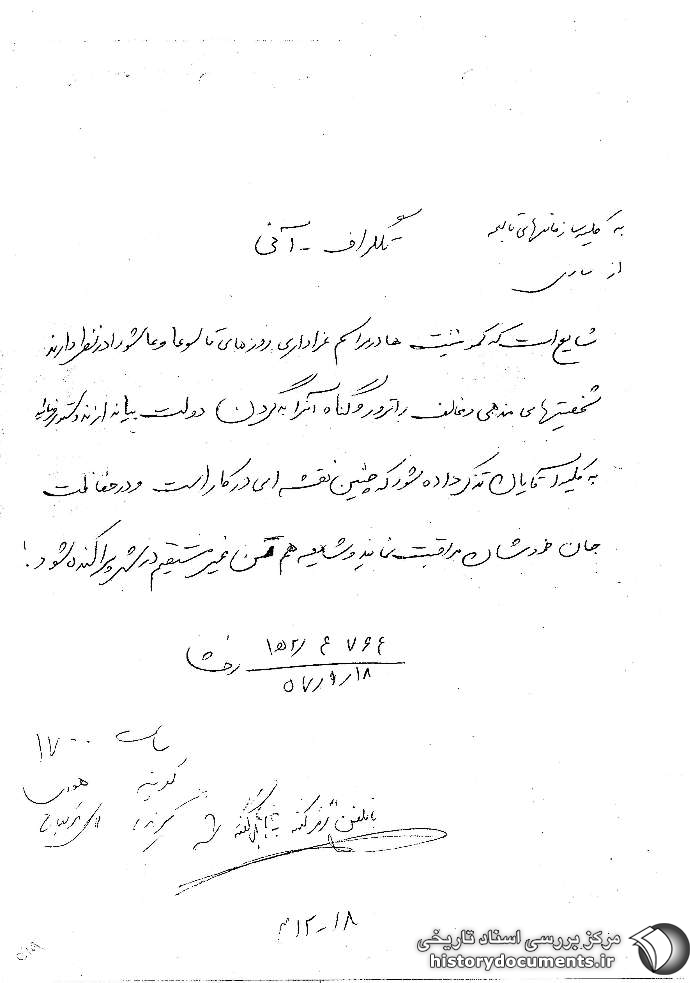 به کلیه سازمانهای تابعه
تلگراف - آنی
از ساری
شایع است که کمونیست ها در مراسم عزاداری روزهای تاسوعا و عاشورا در نظر دارند
شخصیتهای مذهبی و مخالف را ترور و گناه آنرا به گردن دولت بیاندازند دستور فرمائید
به کلیه آقایان تذکر داده شود که چنین نقشه ای در کار است و در حفاظت
جان خودشان مراقبت نمایند و شایعه هم غیر مستقیم در شهر پراکنده شود.
رخشا
۵۷/۹/۱۸
ساعت ۱۷۰۰
گیرنده
۳۱۲-۱۸
مرکز بررسی اسناد تاریخی
historydocuments.ir